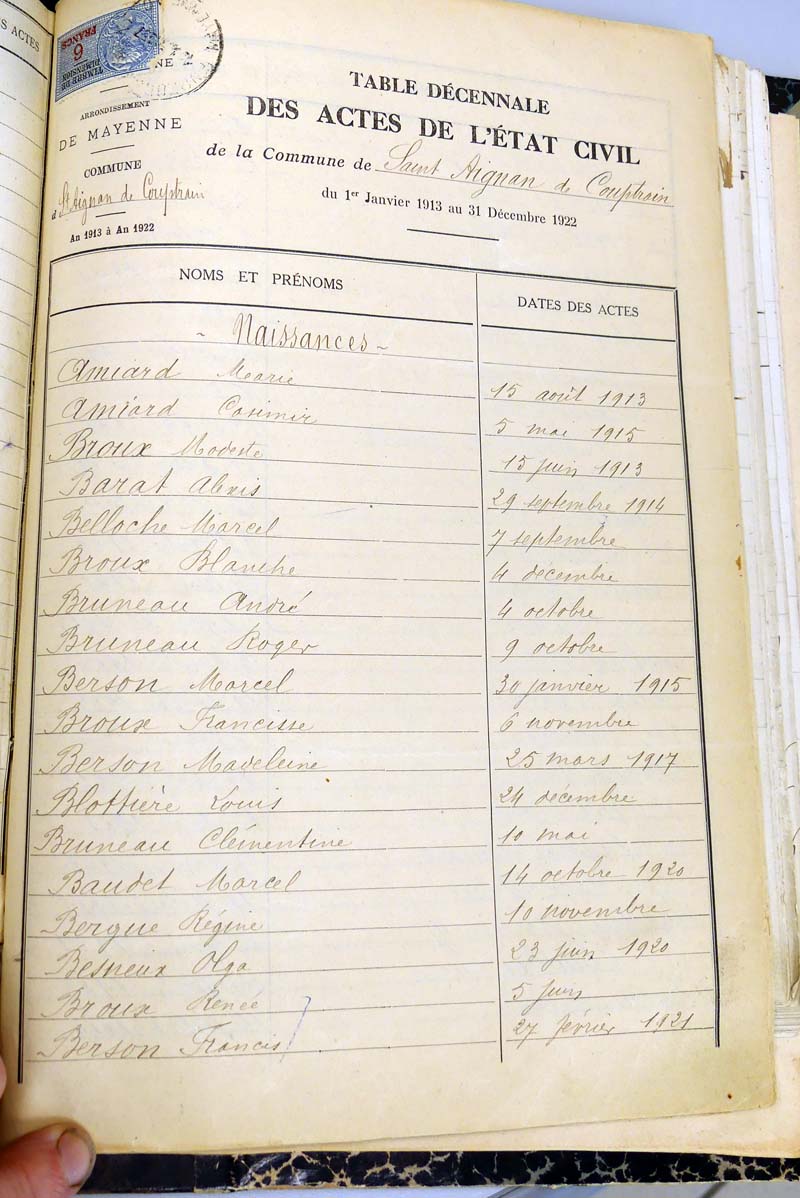 S ACTES
6
FRANCS
TIMBRE DE
DIMENSION
NE
ARRONDISSEMENT
DE MAYENNE
COMMUNE
d St Aignan de Couptrain
An 1913 à An 1922
TABLE DÉCENNALE
DES ACTES DE L'ÉTAT CIVIL
de la Commune de Saint Aignan de Couptrain
du 1er Janvier 1913 au 31 Décembre 1922
NOMS ET PRÉNOMS DATES DES ACTES
- Naissances -
Amiard Marie 15 août 1913
Amiard Casimir 5 mai 1915
Broux Modeste 15 juin 1913
Barat Alexis 29 septembre 1914
Belloche Marcel 7 septembre
Broux Blanche 4 décembre
Bruneau André 4 octobre
Bruneau Roger 9 octobre
Berson Marcel 30 janvier 1915
Broux Francisse 6 novembre
Berson Madeleine 25 mars 1917
Blottière Louis 24 décembre
Bruneau Clémentine 10 mai
Baudet Marcel 14 octobre 1920
Bergue Régine 10 novembre
Besneux Olga 23 juin 1920
Broux Renée 5 juin
Berson Francis 27 février 1921